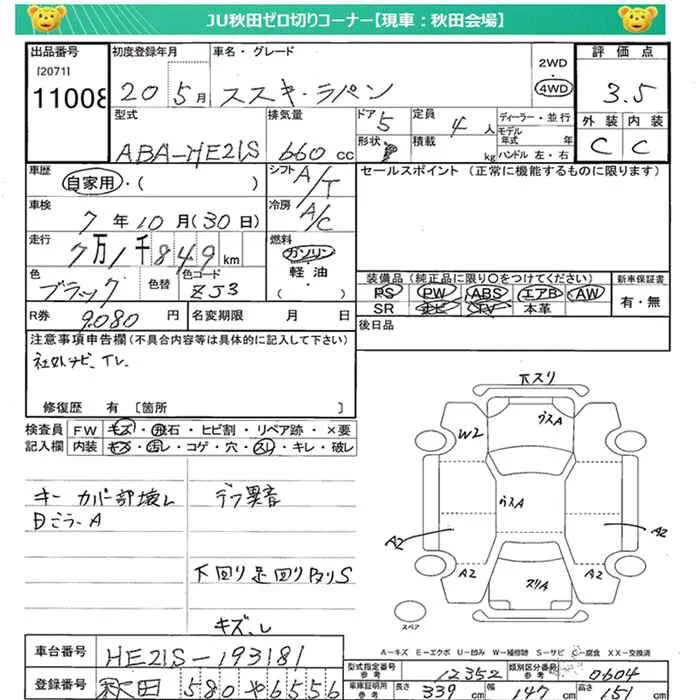 JU秋田ゼロ切りコーナー【現車：秋田会場】
出品番号 初度登録年月 車名・グレード 評価点
[2071]
11008 20 5月 スズキ・ラパン 2WD 4WD 3.5
型式 排気量 ドア 5 定員 4人 ディーラー・並行 外装 内装
ABA-HE21S 660cc 形状 積載 kg モデル年式 年 ハンドル 左・右 C C
車歴 自家用・( ) シフト A/T セールスポイント (正常に機能するものに限ります)
車検 7年10月(30日) 冷房 A/C
走行 7万1千849km 燃料 ガソリン
軽油・( )
色 ブラック 色替 色コード ZJ3 装備品 (純正品に限り○をつけてください) 新車保証書
PS PW ABS エアB AW 有・無
SR ナビ TV 本革
R券 9.080円 名変期限 月 日 後日品
注意事項申告欄 (不具合内容等は具体的に記入して下さい)
社外ナビ、TV.
修復歴 有 [箇所 ]
検査員 FW キズ・飛石・ヒビ割・リペア跡・×要
記入欄 内装 キズ・汚レ・コゲ・穴・スレ・キレ・破レ
キーカバー部壊レ デフ異音
日ごう、A
下回リ足回リ内リS
キズ、レ
下スリ
ウスA
W2
ウスA
A2 A2
A2 A2
スリA
スペア
A－キズ E－エクボ U－凹み W－補修跡 S－サビ C－腐食 XX－交換済
車台番号 HE21S-193181
登録番号 秋田 580 や 6556
型式指定番号 参考 12352 類別区分番号 参考 0604
車庫証明用 参考 長さ 339cm 幅 147cm 高さ 151cm